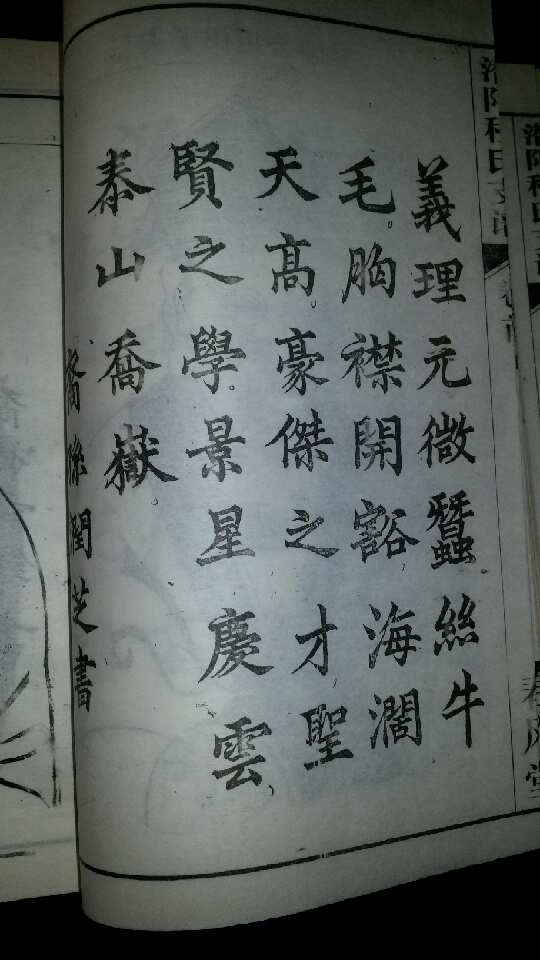 義理元微蠶絲牛
毛。胸襟開豁。海濶
天高。豪傑之才。聖
賢之學。景星慶雲
泰山喬嶽。
裔孫閏芝書